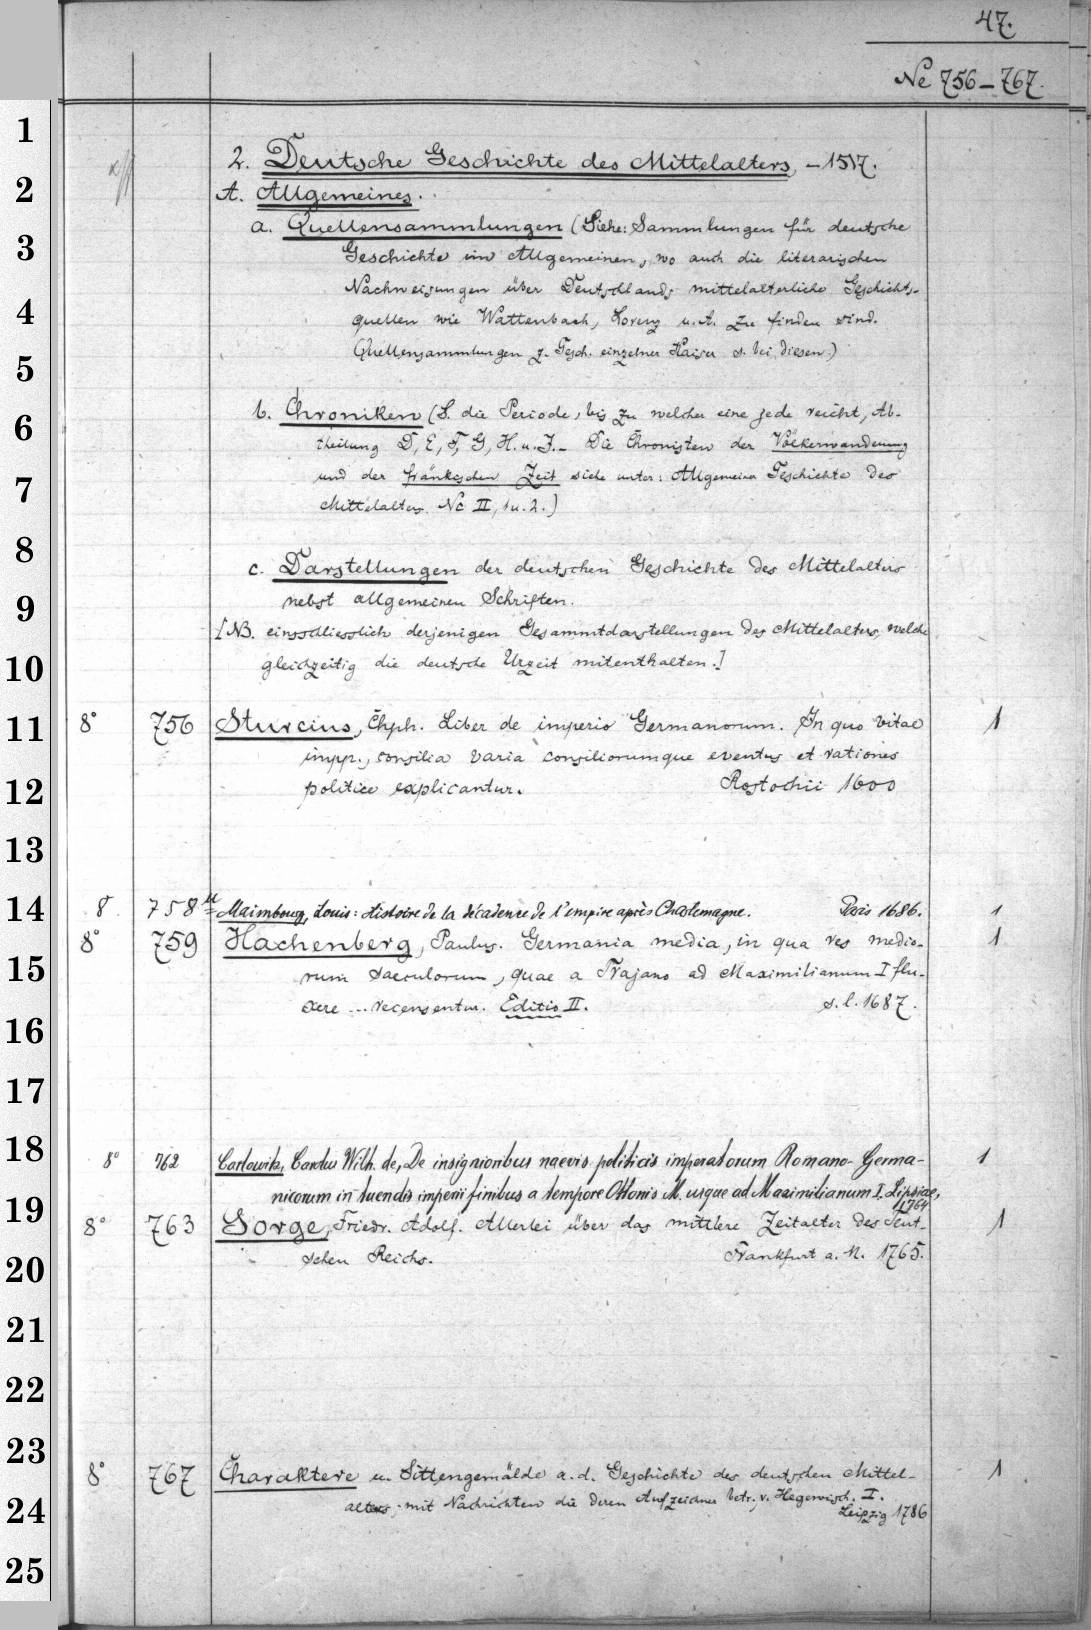 47.
Nc 756–767.
1
2. Deutsche Geschichte des Mittelalters, –1517.
2
A. Allgemeines.
3
a. Quellensammlungen (Siehe: Sammlungen für deutsche
Geschichte im Allgemeinen, wo auch die literarischen
4
Nachweisungen über Deutschlands mittelalterliche Geschichts-
quellen wie Wattenbach, Lorenz u. A. zu finden sind.
5
Quellensammlungen z. Gesch. einzelner Kaiser s. bei diesen.)
6
b. Chroniken (S. die Periode, bis zu welcher eine jede reicht, Ab-
theilung D, E, F, G, H. u. J. – Die Chronisten der Völkerwanderung
7
und der fränkischen Zeit siehe unter: Allgemeine Geschichte des
Mittelalters Nc II, 1 u. 2.)
8
c. Darstellungen der deutschen Geschichte des Mittelalters
9
nebst allgemeinen Schriften.
[NB. einschliesslich derjenigen Gesammtdarstellungen des Mittelalters, welche
10
gleichzeitig die deutsche Urzeit mitenthalten.]
11
8° 756 Sturcius, Chph. Liber de imperio Germanorum. In quo vitae 1
impp., consilia varia consiliorumque eventus et rationes
12
politice explicantur. Rostochii 1600
13
14
8° 758 Maimbourg, Louis: Histoire de la décadence de l'empire après Charlemagne. Paris 1686. 1
8° 759 Hachenberg, Paulus. Germania media, in qua res medio- 1
15
rum saeculorum, quae a Trajano ad Maximilianum I flu-
xere ... recensentur. Editio II. s. l. 1687.
16
17
18
8° 762 Carlowitz, Carolus Wilh. de, De insignioribus naevis politicis imperatorum Romano-Germa- 1
19
nicorum in tuendis imperii finibus a tempore Ottonis M. usque ad Maximilianum I. Lipsiae,
1764
8° 763 Sorge, Friedr. Adolf. Allerlei über das mittlere Zeitalter des Teut- 1
20
schen Reichs. Frankfurt a. M. 1765.
21
22
23
8° 767 Charaktere u. Sittengemälde a. d. Geschichte des deutschen Mittel- 1
24
alters; mit Nachrichten die deren Aufzeichner betr., v. Hegewisch. I.
Leipzig 1786
25